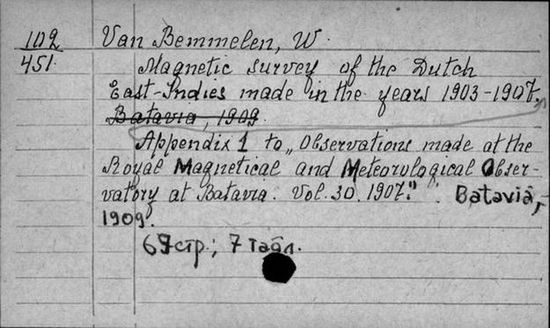 1102 Van Bemmelen, W.
451. Magnetic survey of the Dutch
East-Indies made in the years 1903-1907.
Batavia, 1909.
Appendix 1 to „Observations made at the
Royal Magnetical and Meteorological Obser-
vatory at Batavia. Vol. 30. 1907." Batavia,
1909.
69 стр.; 7 табл.